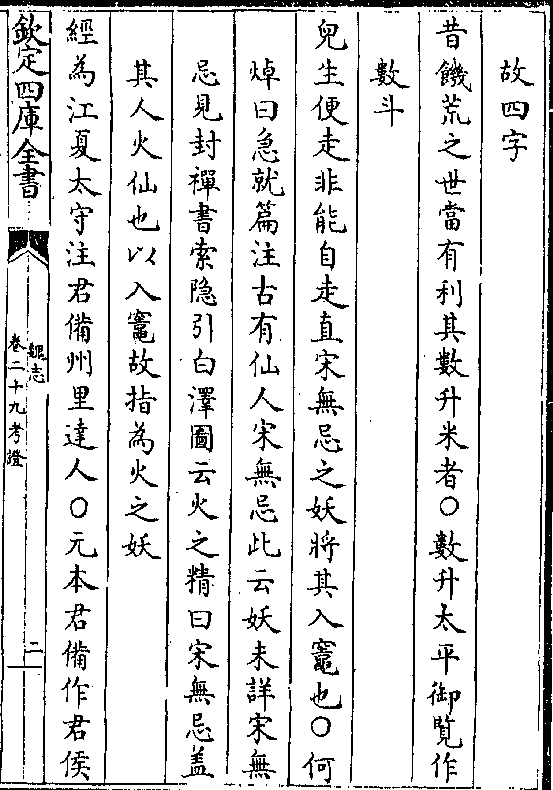 故四字
昔饑荒之世當有利其數升米者○數升太平御覧作
數斗
兒生便走非能自走直宋無忌之妖將其入竈也○何
焯曰急就篇注古有仙人宋無忌此云妖未詳宋無
忌見封禪書索隐引白澤圖云火之精曰宋無忌盖
其人火仙也以入竈故指為火之妖
經為江夏太守注君備州里達人○元本君備作君侯
欽定四庫全書
魏志
卷二十九考證
二